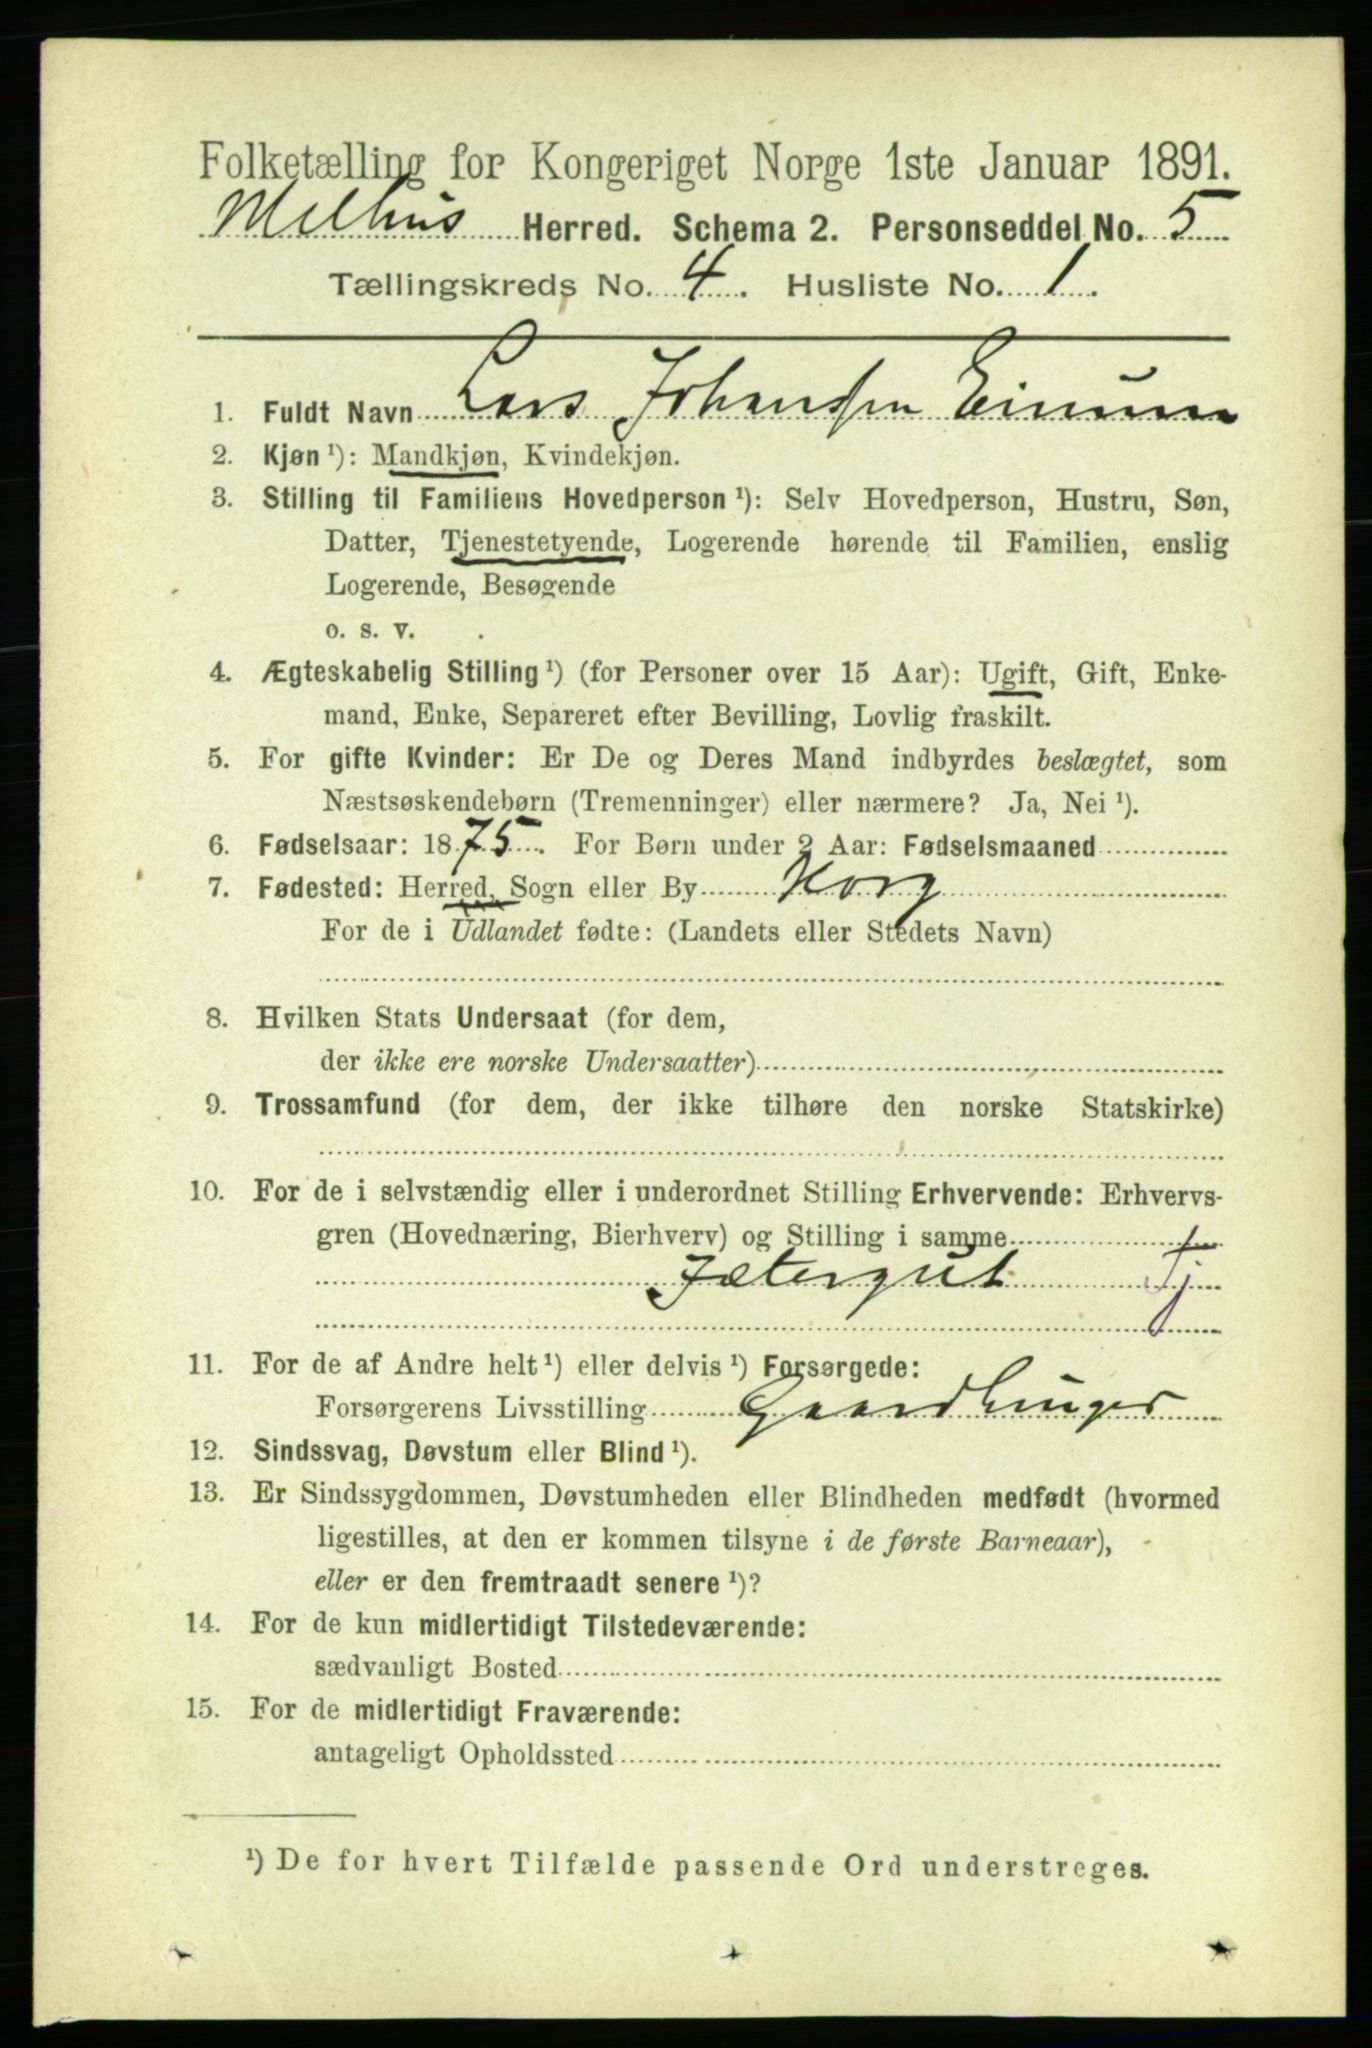 Folketælling for Kongeriget Norge 1ste Januar 1891.
Melhus Herred. Schema 2. Personseddel No. 5
Tællingskreds No. 4. Husliste No. 1.
1. Fuldt Navn Lars Johansen
2. Kjøn ¹): Mandkjøn, Kvindekjøn.
3. Stilling til Familiens Hovedperson ¹): Selv Hovedperson, Hustru, Søn,
Datter, Tjenestetyende, Logerende hørende til Familien, enslig
Logerende, Besøgende
o. s. v.
4. Ægteskabelig Stilling ¹) (for Personer over 15 Aar): Ugift, Gift, Enke-
mand, Enke, Separeret efter Bevilling, Lovlig fraskilt.
5. For gifte Kvinder: Er De og Deres Mand indbyrdes beslægtet, som
Næstsøskendebørn (Tremenninger) eller nærmere? Ja, Nei ¹).
6. Fødselsaar: 1875. For Børn under 2 Aar: Fødselsmaaned
7. Fødested: Herred, Sogn eller By Horg
For de i Udlandet fødte: (Landets eller Stedets Navn)
8. Hvilken Stats Undersaat (for dem,
der ikke ere norske Undersaatter)
9. Trossamfund (for dem, der ikke tilhøre den norske Statskirke)
10. For de i selvstændig eller i underordnet Stilling Erhvervende: Erhvervs-
gren (Hovednæring, Bierhverv) og Stilling i samme
Jætergut Tj
11. For de af Andre helt ¹) eller delvis ¹) Forsørgede:
Forsørgerens Livsstilling Gaardbruger
12. Sindssvag, Døvstum eller Blind ¹).
13. Er Sindssygdommen, Døvstumheden eller Blindheden medfødt (hvormed
ligestilles, at den er kommen tilsyne i de første Barneaar),
eller er den fremtraadt senere ¹)?
14. For de kun midlertidigt Tilstedeværende:
sædvanligt Bosted
15. For de midlertidigt Fraværende:
antageligt Opholdssted
¹) De for hvert Tilfælde passende Ord understreges.